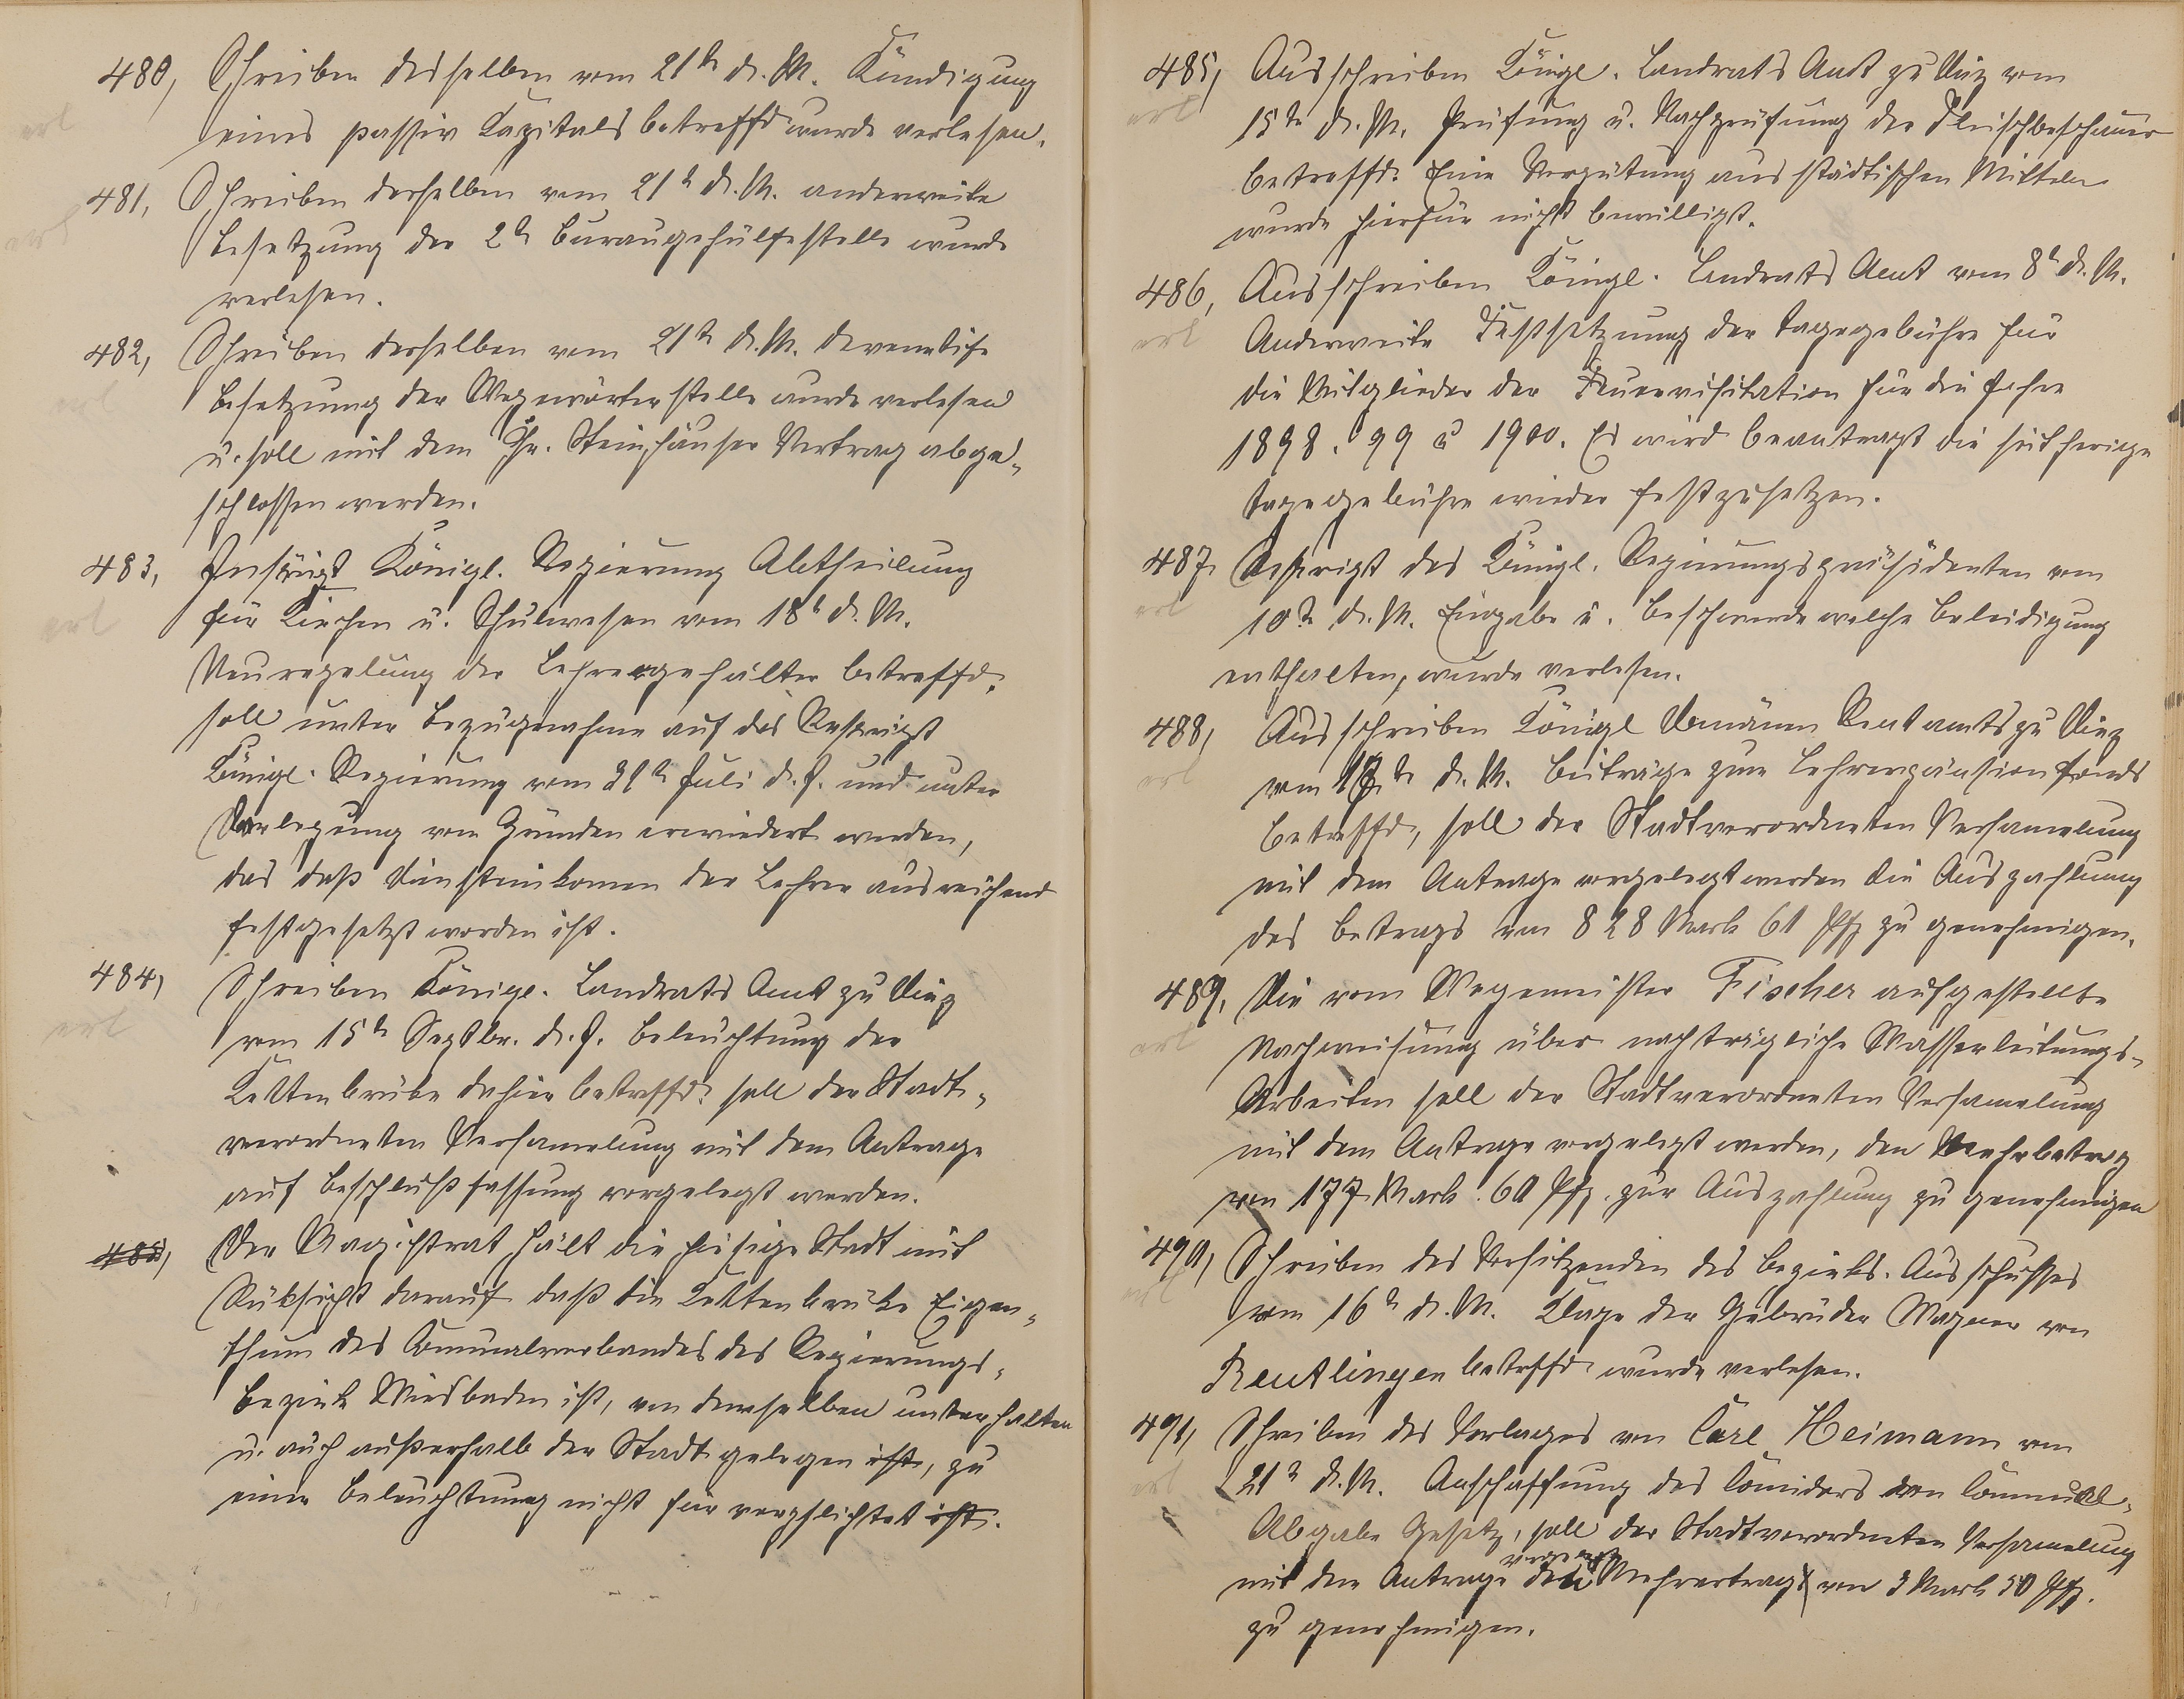 480, Schreiben desselben vom 21t d. M. Kündigung
erl
eines passiv Kapitals betreffd wurde verlesen.
481, Schreiben desselben vom 21t d. M. anderweite
erl
Besetzung der 2t Büraugehülfestelle wurde
verlesen.
482, Schreiben desselben vom 21t d. M.
erl
Besetzung der Wegewärterstelle wurde verlesen
u. soll mit dem Chr. Steinhäuser Vertrag abge-
schlossen werden.
483, Königl. Regierung Abtheilung
für Kirchen u. Schulwesen vom 18t d. M.
erl
Neuregelung der Lehrergehälter betreffd.
soll unter Bezugnahme auf das Reskript
Königl. Regierung vom 31t Juli d. J. und unter
Darlegung von Gründen erwiedert werden,
das daß Diensteinkomen der Lehrer ausreichend
festgesetzt worden ist.
484, Schreiben Königl. Landrats Amt zu Diez
erl
vom 15t Septbr. d. J. Beleuchtung der
Kettenbrüke dahier betreffd. soll der Stadt-
verordneten Versamelung mit dem Antrage
auf Beschlußfassung vorgelegt werden.
485, Der Magistrat hält die hiesige Stadt mit
Rüksicht darauf daß die Kettenbrüke Eigen-
thum des Communalverbandes des Regierungs-
bezirk Wiesbaden ist, von demselben unterhalten
u. auch außerhalb der Stadt gelegen ist, zu
einer Beleuchtung nicht für verpflichtet ist.
485, Ausschreiben Königl. Landrats Amt zu Diez vom
erl
15te d. M. Prüfung u. Nachprüfung der Fleischbeschauer
betreffd. Eine Vergütung aus städtischen Mitteln
wurde hierfür nicht bewilligt.
486, Ausschreiben Königl. Landrats Amt vom 8t d. M.
erl
Anderweite Festsetzung der Tagegebühre für
die Mitglieder der Feuervisitation für die Jahre
1898. 99 u 1900. Es wird beantragt die seitherige
Tagegebühre wieder festzusetzen.
487, Reskript des Königl. Regierungspräsidenten vom
erl
10t d. M. Eingabe u. Beschwerde welche Beleidigung
enthalten, wurde verlesen.
488, Ausschreiben Königl Domänen Rentamts zu Diez
erl
vom d. M. Beiträge zum Lehrerpänsionfonds
betreffd, soll der Stadtverordneten Versamelung
mit dem Antrage vorgelegt werden die Auszahlung
des Betrags von 828 Mark 61 Pfg zu genehmigen.
489, Die vom Wegemeister Fischer aufgestellte
erl
Nachweisung über nachträgliche Wasserleitungs-
Arbeiten soll der Stadtverordneten Versamelung
mit dem Antrage vorgelegt werden, den Mehrbetrag
von 177 Mark. 60 Pfg. zur Auszahlung zu genehmigen
490, Schreiben des Vorsitzenden des Bezirks-Ausschusses
erl
vom 16t d. M. Klage der Gebrüder Wagner von
Reutlingen betrffd wurde verlesen.
491, Schreiben des Verlages von Carl Heimann vom
erl
21t d. M. Anschaffung des von
Abgabe Gesetz, soll der Stadtverordneten Versamelung
mit dem Antrage den Mehrbetrag von 3 Mark 50 Pfg.
zu genehmigen.